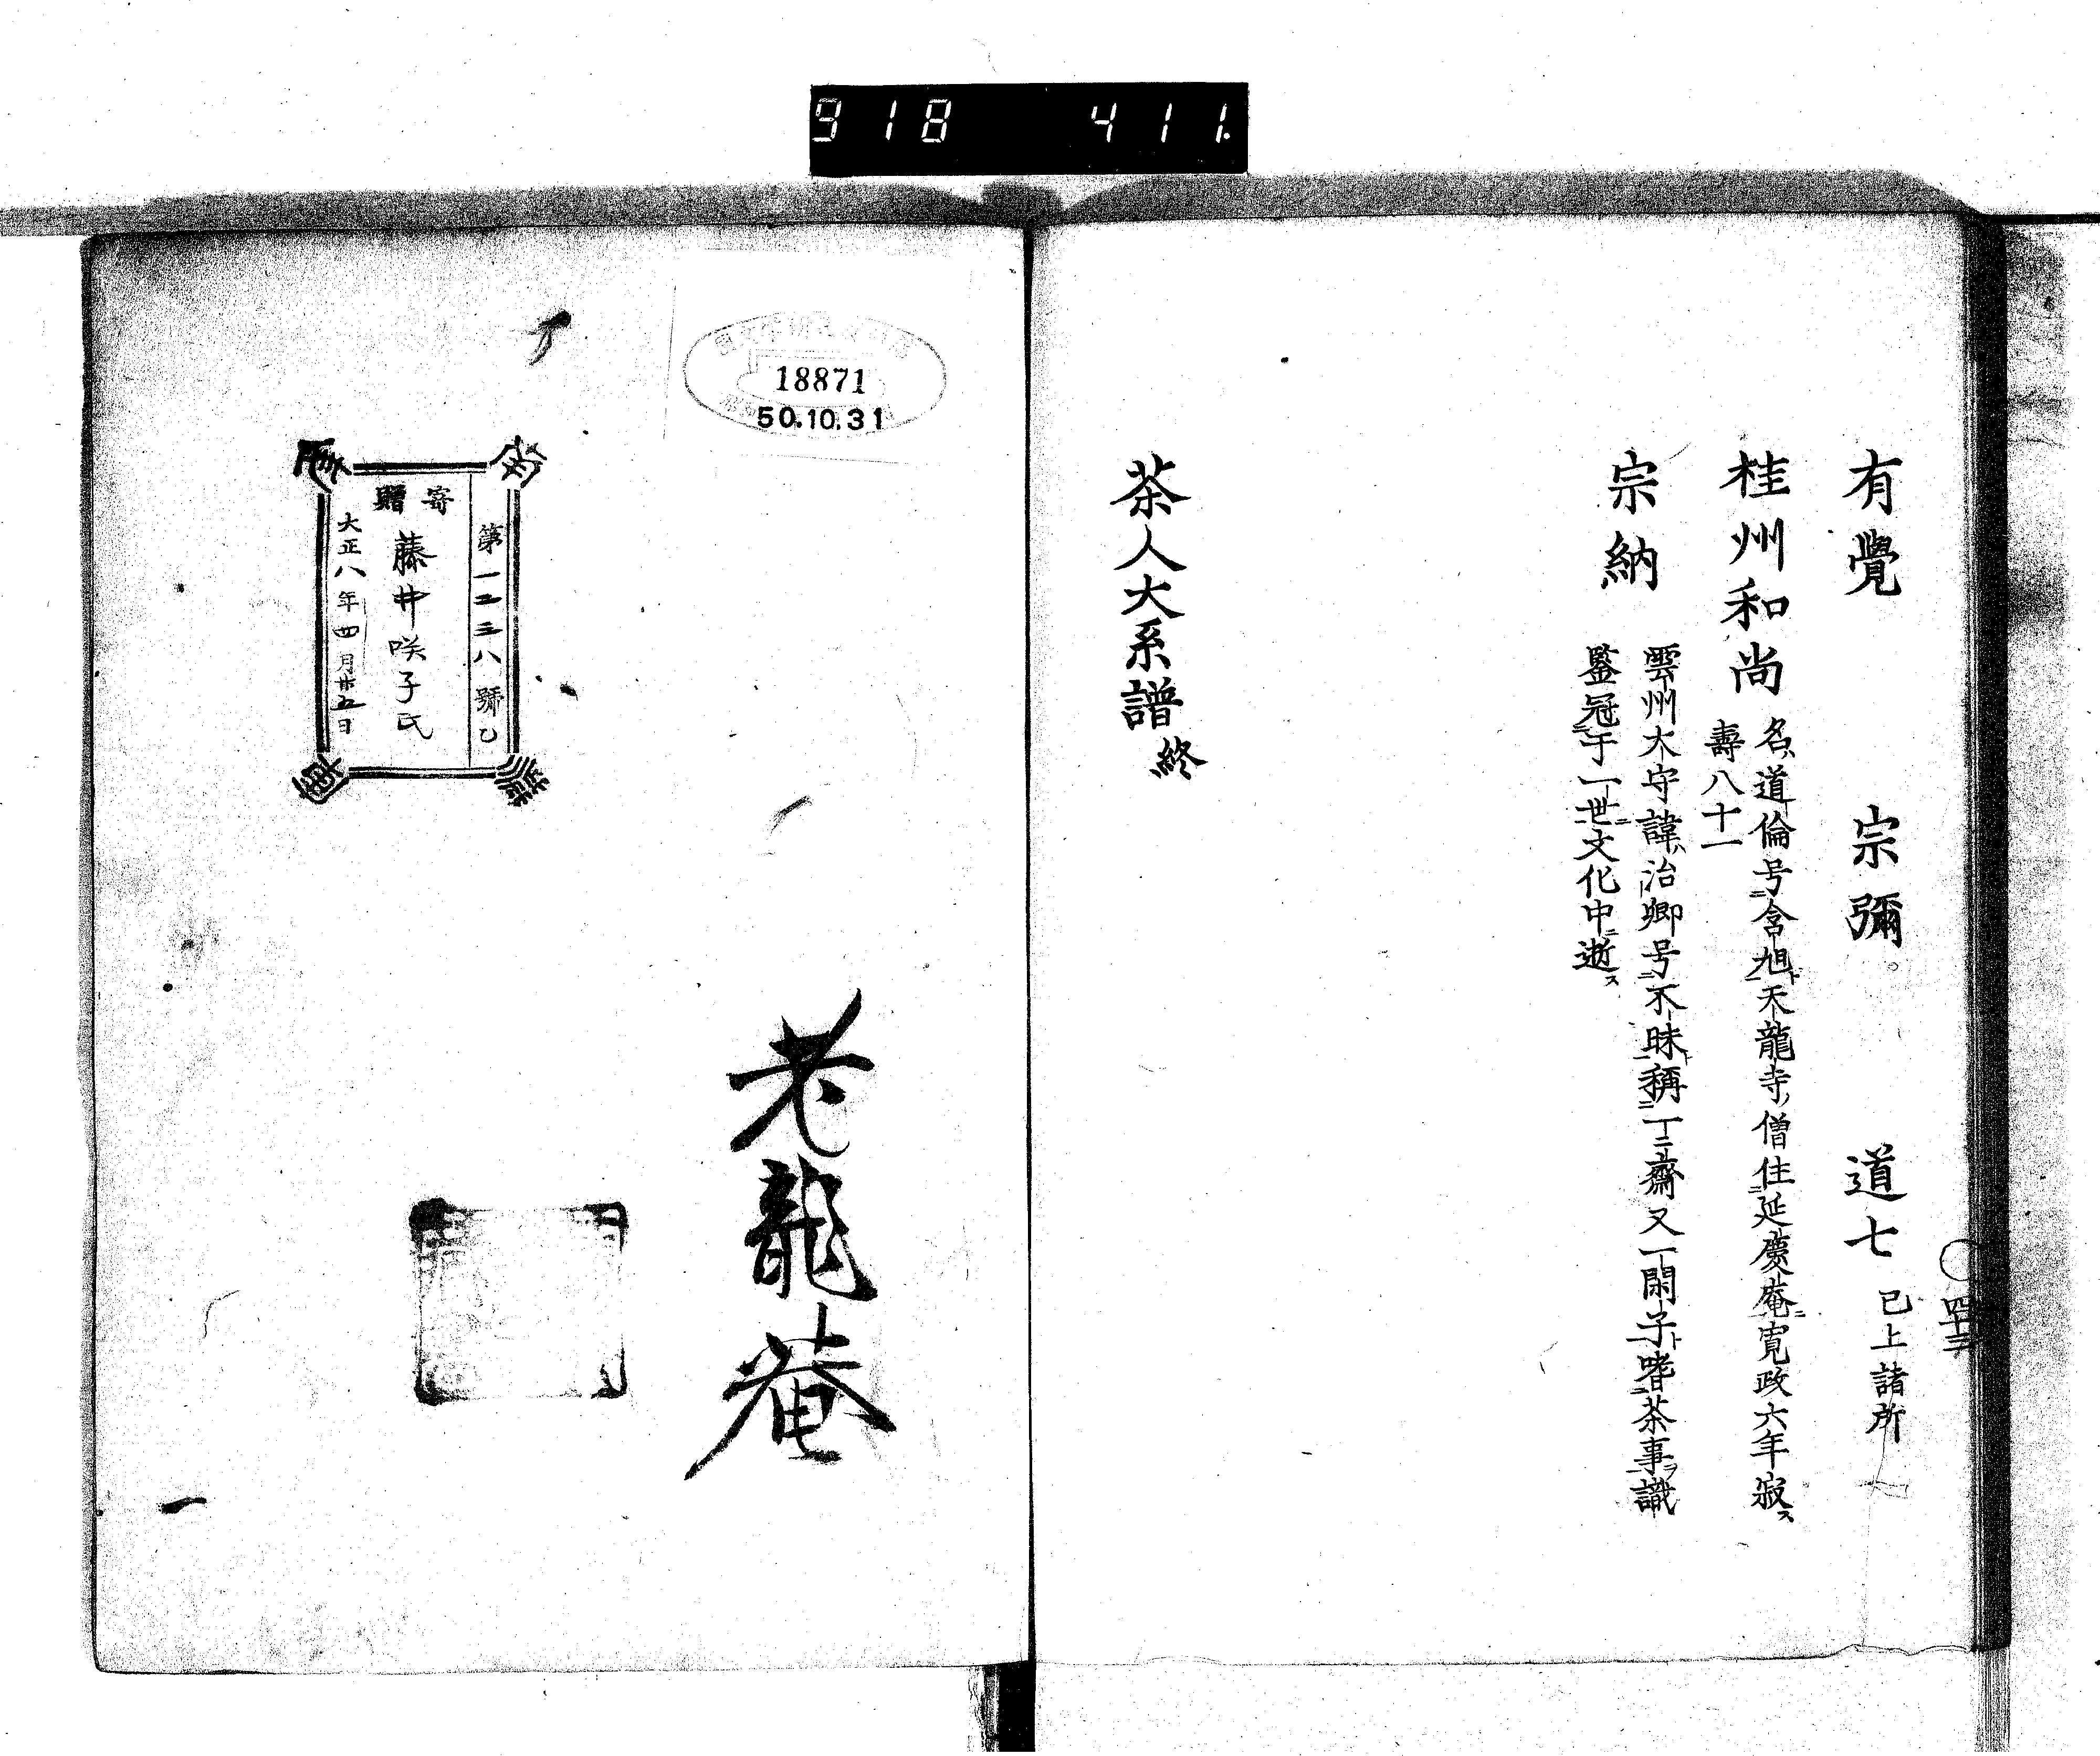 918 411.
有覺 宗彌 道七 已上諸所
桂州和尚 名ハ道倫号ニ含旭ト天龍寺ノ僧住ニ延慶庵ニ寛政六年寂ス
壽八十一
宗納 雲州太守諱ハ治郷号ニ不昧ト稱ニ一二齋又一閑子ト嗜ニ茶事ヲ識
鑒冠ニ于一世ニ文化中ニ逝ス
茶人大系譜終
18871
50.10.31
寄贈
第一二三八號乙
藤井咲子氏
大正八年四月廿五日
老龍菴